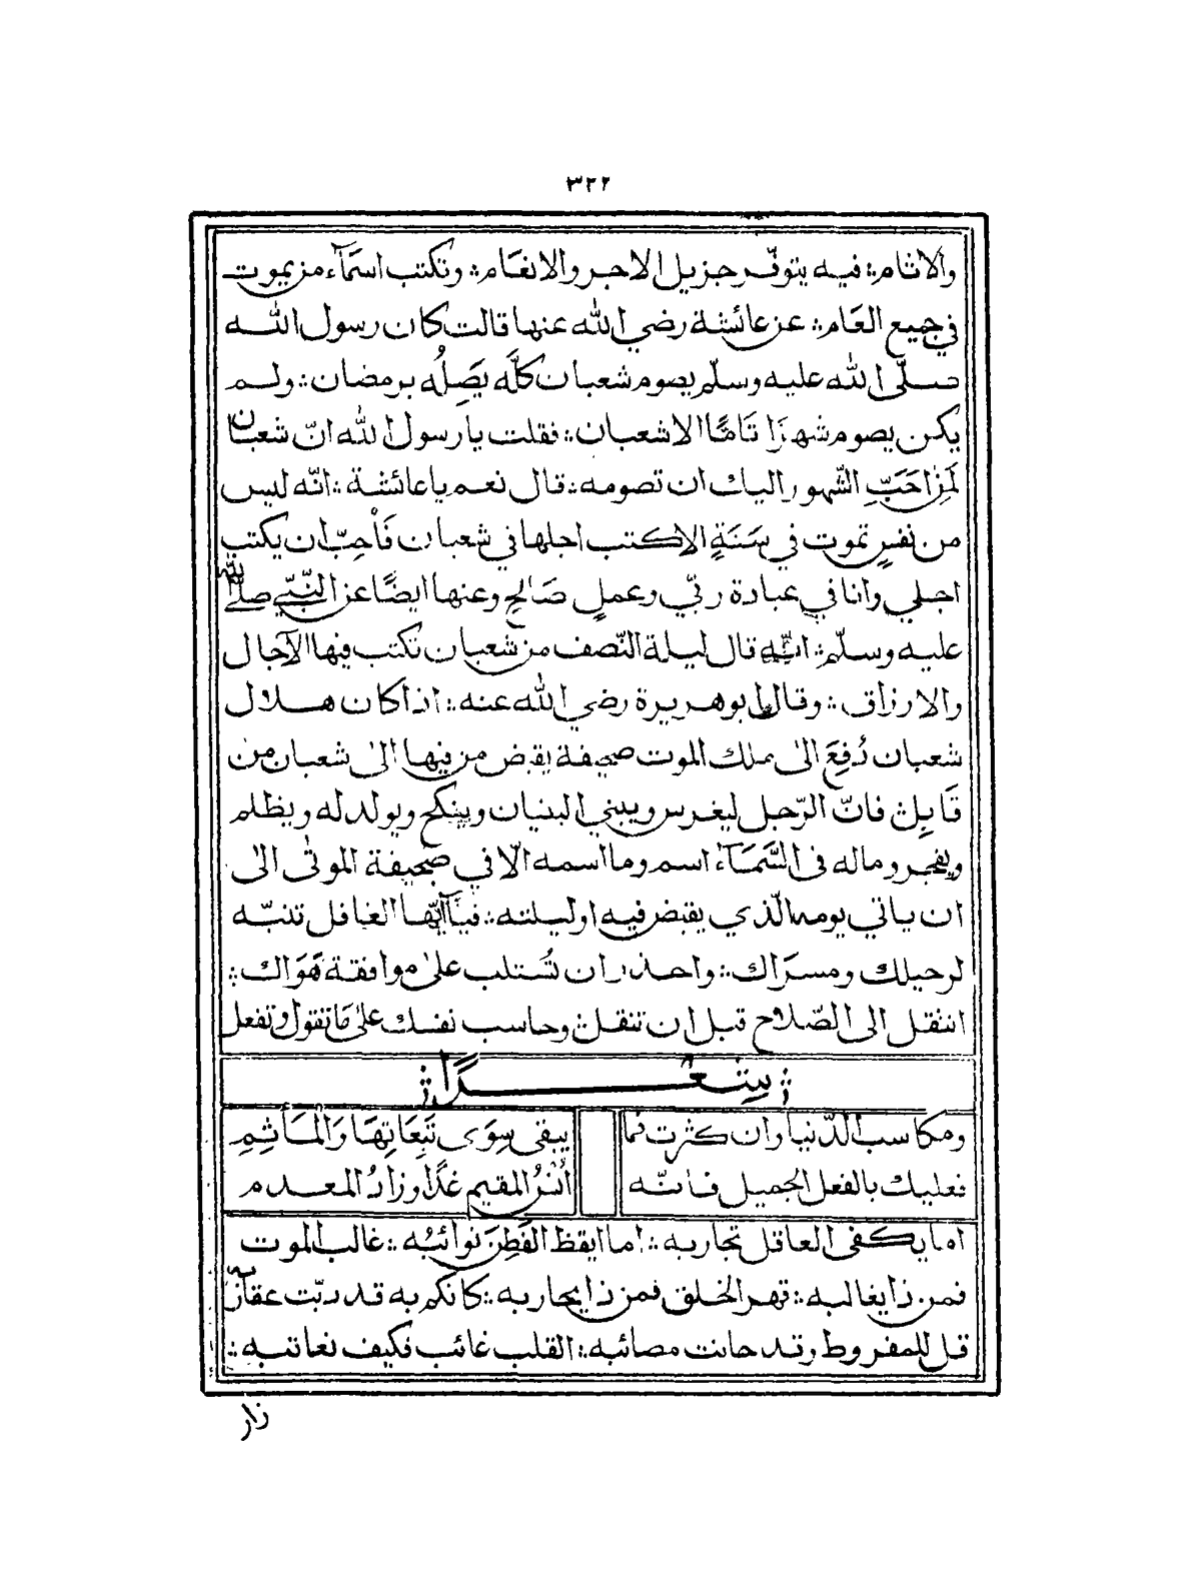 ٣٢٢
والاثام ؛ فيه يتوفّر جزيل الاجر والانعَام ؛ وتكتب اسمَآء من يموت
في جميع العَام ؛ عن عائشة رضي الله عنها قالت كان رسول الله
صلّى الله عليه وسلّم يصوم شعبان كلَّه يَصِلُه برمضان ؛ ولم
يكن يصوم شهرًا تَامًّا الا شعبان ؛ فقلت يا رسول الله انّ شعبان
لَمِن احَبِّ الشّهور اليك ان تصومه ؛ قال نعم يا عائشة ؛ انّه ليس
من نفسٍ تموت في سَنَةٍ الا كتب اجلها في شعبان فَأُحِبّ ان يكتب
اجلي وانا في عبادة ربّي وعملٍ صَالحٍ وعنها ايضًا عن النّبّي صلّى الله
عليه وسلّم ؛ انّه قال ليلة النّصف من شعبان تكتب فيها الآجال
والارزاق ؛ وقال ابو هريرة رضي الله عنه ؛ اذا كان هلال
شعبان دُفِعَ الى ملك الموت صحيفة يقبض من فيها الى شعبان من
قَابِلٍ فانّ الرّجل ليغرس ويبني البنيان وينكح ويولد له ويظلم
ويفجر وماله فى السَّمَآء اسم وما اسمه الّا في صحيفة الموتٰى الىٰ
ان ياتي يومه الّذي يقبض فيه او ليلته ؛ فيَآ ايّها الغافل تنبّه
لرحيلك ومسرَاك ؛ واحذر ان تُستلب علىٰ موافقة هَوَاك ؛
انتقل الى الصّلاح قبل ان تنقل ؛ وحاسب نفسك علىٰ مَا تقول وتفعل
؛ شعرًا ؛
ومكاسب الدّنيا وان كثرت فما يبقى سِوَى تَبِعَاتِهَا وَالمَأثِمِ
فعليك بالفعل الجميل فانّه أُنسُ المقيم غدًا وزادُ المعدم
اما يكفى العاقل تجاربه ؛ اما ايقظ الفَطِنَ نوائبُه ؛ غالب الموت
فمن ذا يغالبه ؛ قهر الخلق فمن ذا يحاربه ؛ كانكم به قد دبّت عقاربه
قل للمفروط وقد حانت مصائبه ؛ القلب غائب فكيف نعاتبه ؛
زار